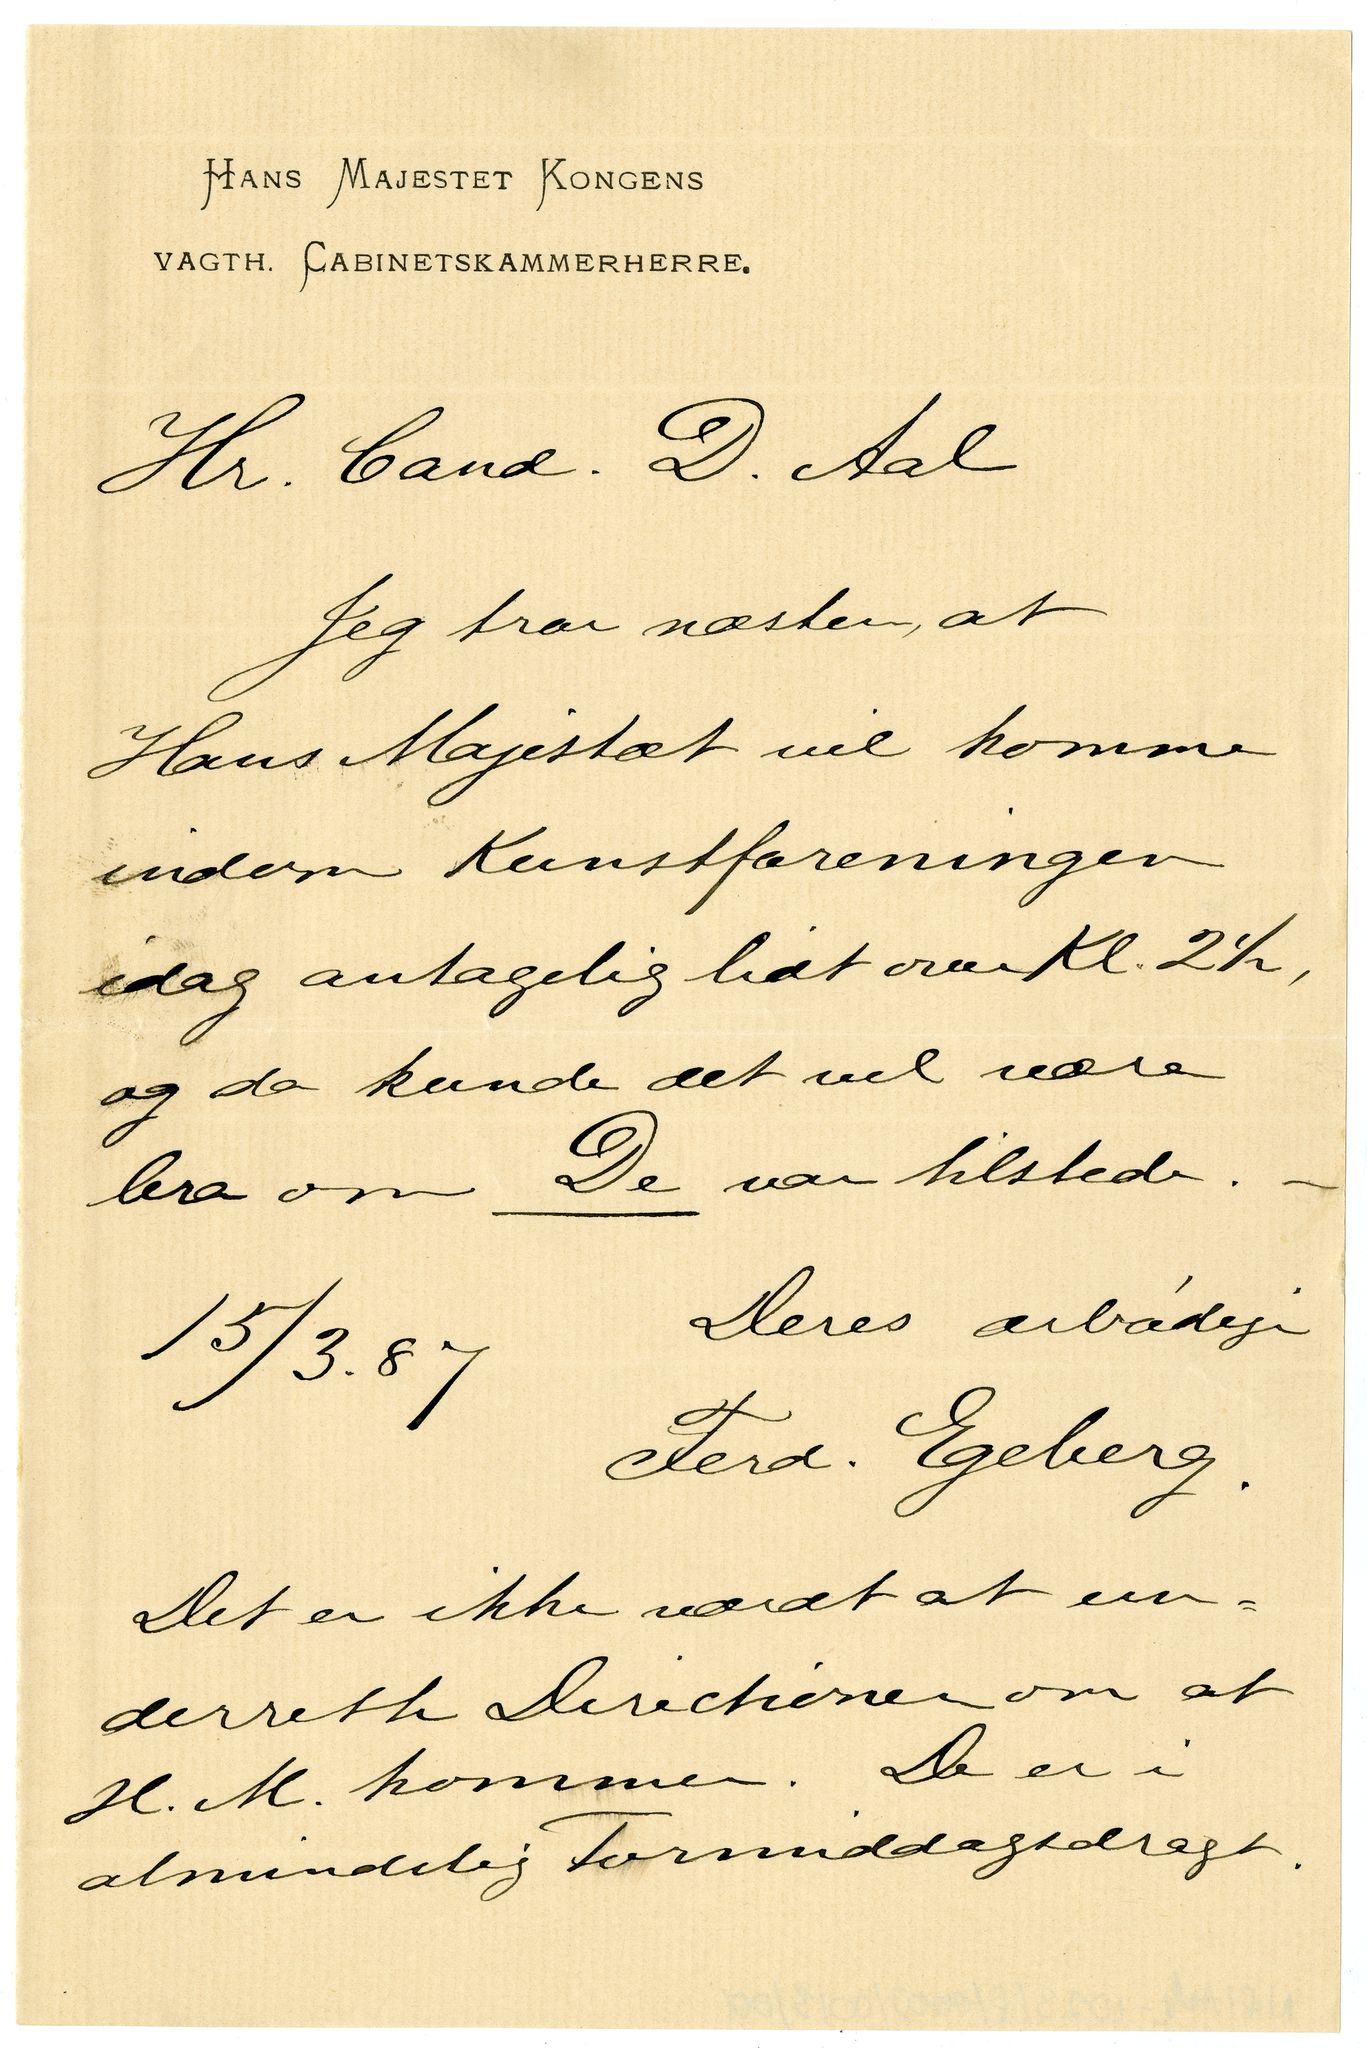 HANS MAJESTET KONGENS
VAGTH. CABINETSKAMMERHERRE.
Hr. Cand. D. Aal
Jeg tror næsten, at
Hans Majestæt vil komme
indom Kunstforeningen
idag antagelig lidt over Kl. 2½,
og da kunde det vel være
bra om De var tilstede. –
15/3.87
Deres ærbødige
Ferd. Egeberg.
Det er ikke værdt at un=
derrette Directionen om at
H. M. kommer. De er i
almindelig Formiddagsdragt.